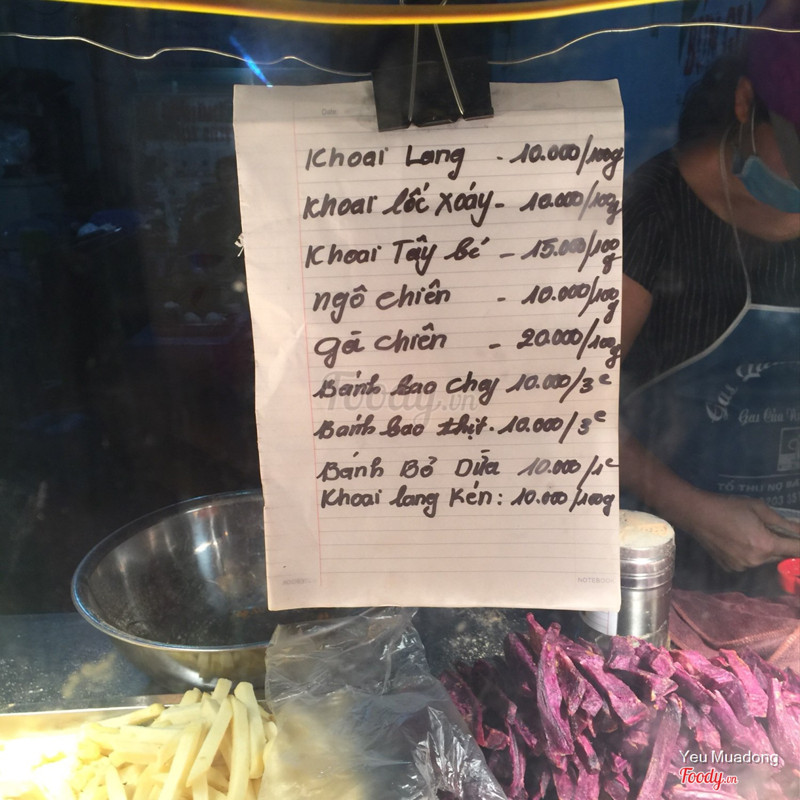 Khoai Lang - 10.000/100g
Khoai lốc xoáy - 10.000/100g
Khoai Tây bé - 15.000/100g
ngô chiên - 10.000/100g
gà chiên - 20.000/100g
Bánh bao chay 10.000/3c
Bánh bao thịt. 10.000/3c
Bánh Bò Dừa 10.000/1c
Khoai lang Kén: 10.000/100g
NOTEBOOK
Foody.vn
Yeu Muadong
Foody.vn